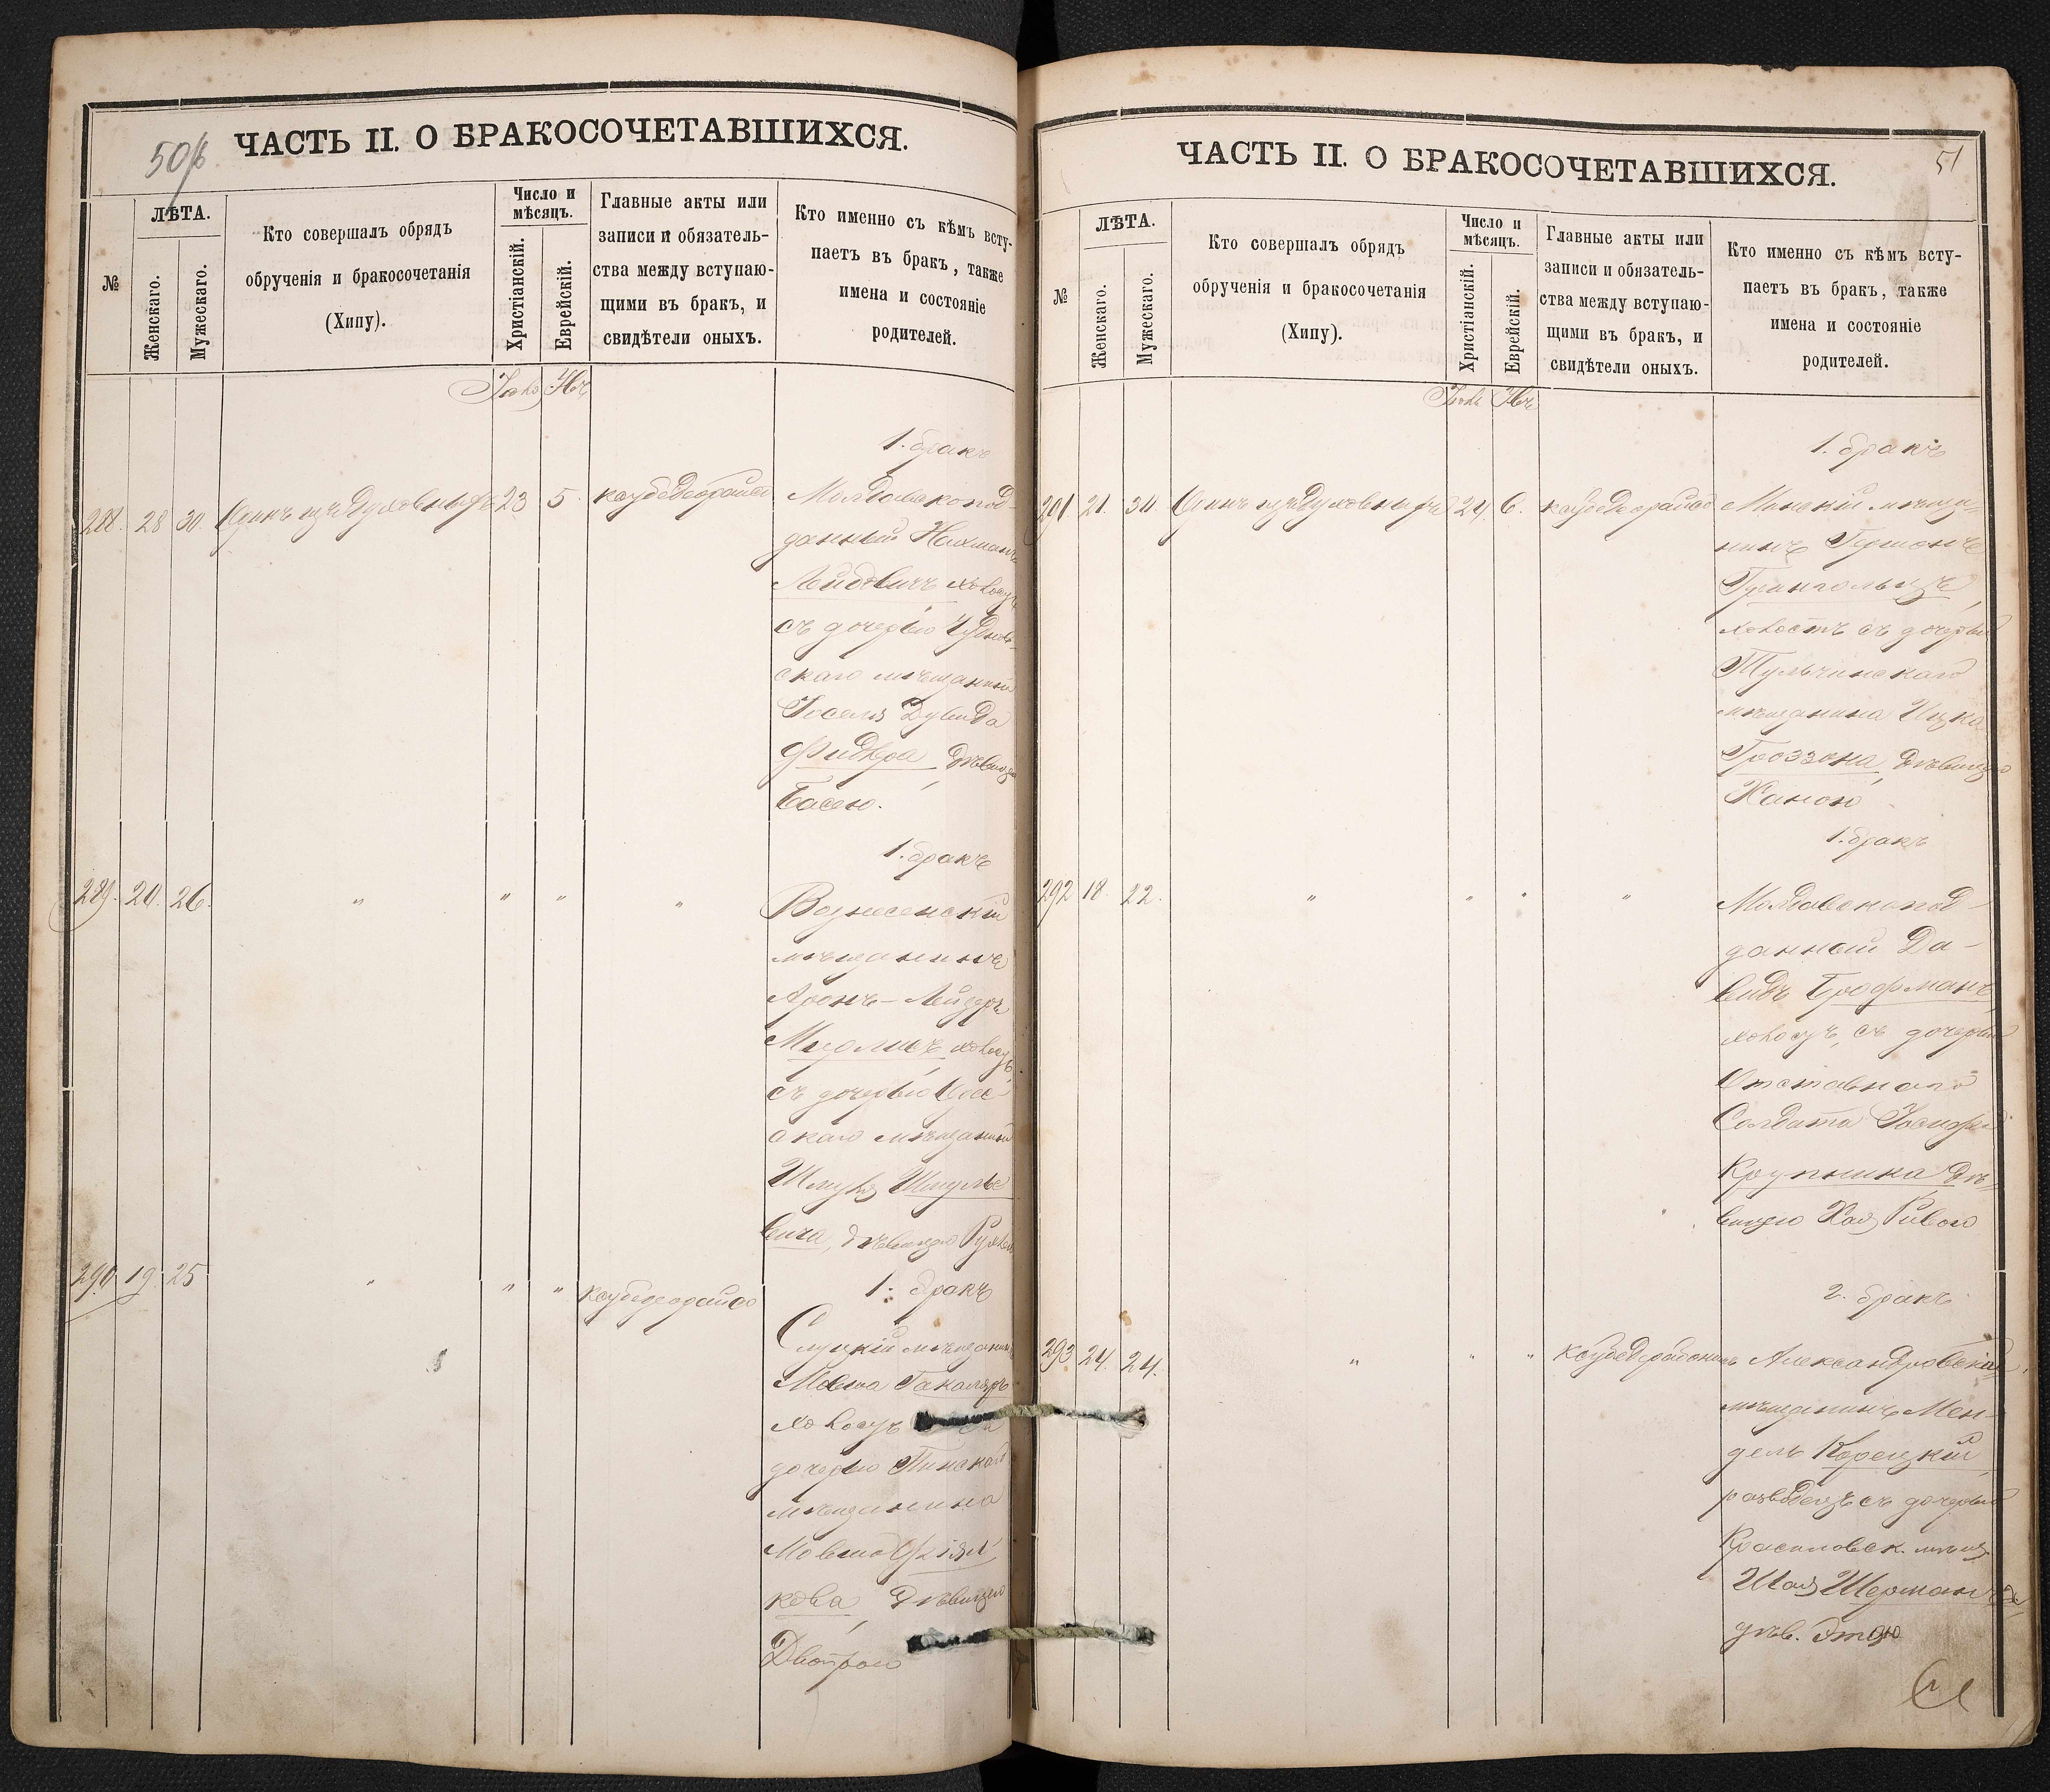 50/б
ЧАСТЬ II. О БРАКОСОЧЕТАВШИХСЯ.
№
ЛѢТА.
Женскаго.
Мужескаго.
Кто совершалъ обрядъ
обрученія и бракосочетанія
(Хипу).
Число и
мѣсяцъ.
Христіанскій.
Еврейскій.
Главные акты или
записи и обязатель-
ства между вступаю-
щими въ бракъ, и
свидѣтели оныхъ.
Кто именно съ кѣмъ всту-
паетъ въ бракъ, также
имена и состояніе
родителей.
1. бракъ
288. 28 30. Одинъ изъ Духовныхъ 23 5. Молдавскопод-
данный Нахманъ
Лейбовичъ холостъ
съ дочерью Чуднов-
скаго мѣщанина
Іоселя Дувида
Фидлера, дѣвицею
Басею.
1. бракъ
289. 20. 26. " " " " Вознесенскій
мѣщанинъ
Аронъ-Лейзеръ
холостъ
съ дочерью
скаго мѣщанина
Шмуля Шмуле
вича, дѣвицею Рухлею
290 19 25 " " " 1. бракъ
Слуцкій мѣщанинъ
Мовша Гакаляръ
холостъ съ
дочерью Пинскаго
мѣщанина
Мовша
кова, дѣвицею
Двойрою
51
ЧАСТЬ II. О БРАКОСОЧЕТАВШИХСЯ.
№
ЛѢТА.
Женскаго.
Мужескаго.
Кто совершалъ обрядъ
обрученія и бракосочетанія
(Хипу).
Число и
мѣсяцъ.
Христіанскій.
Еврейскій.
Главные акты или
записи и обязатель-
ства между вступаю-
щими въ бракъ, и
свидѣтели оныхъ.
Кто именно съ кѣмъ всту-
паетъ въ бракъ, также
имена и состояніе
родителей.
1. бракъ
291. 21. 30 Одинъ изъ Духовныхъ 24. 6. Минскій мѣща-
нинъ Гершонъ
Грингольцъ,
холостъ съ дочерью
Тульчинскаго
мѣщанина Ицка
Гроззона, дѣвицею
Ханою
1. бракъ
292 18. 22. " " " " Молдавскопод-
данный Да-
видъ Брофманъ,
холостъ, съ дочерью
Отставнаго
Солдата Іосифа
Крупника дѣ-
вицею Хая Ривою
2. бракъ
293 24. 24. " " " Александровскій
мѣщанинъ Мен-
дель Корецкій,
разведенъ съ дочерью
Красиловск. мѣщ.
Шая Шерманъ
дѣв. Этею